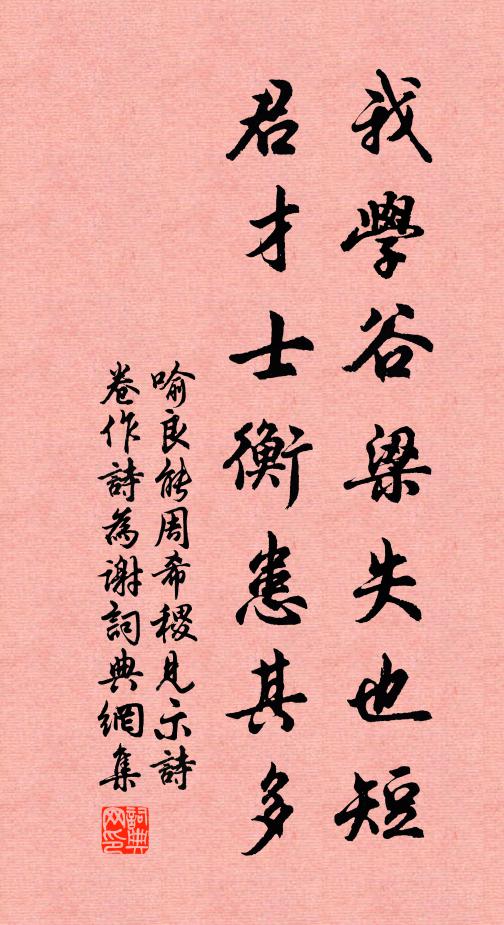 我學谷梁失也短
君才士衡患其多
喻良能周希稷見示詩
卷作詩為謝詞典網集
詞典
网印